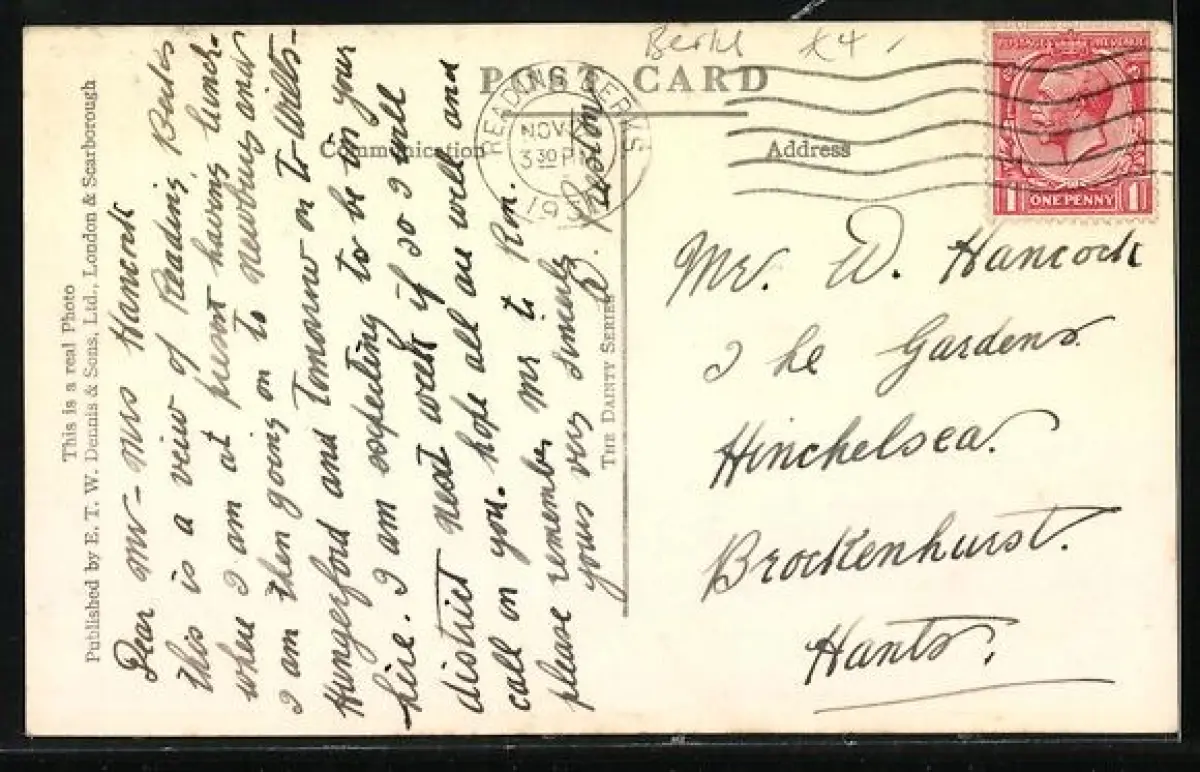 Berks £4
POST CARD
Communication
Address
READING BERKS
NOV
3 30 PM
193
ONE PENNY
1 1
This is a real Photo
Published by E. T. W. Dennis & Sons, Ltd., London & Scarborough
THE DAINTY SERIES
Dear Mr - Mrs Hancock
This is a view of Reading, Berks
where I am at present having lunch.
I am then going on to Newbury and
Hungerford and Tomorrow on To Wilts-
hire. I am expecting to be in your
district next week if so I will
call on you. hope all are well and
please remember me to Rm.
yours very sincerely
Preston
Mr. W. Hancock
The Gardens
Hinchelsea.
Brockenhurst.
Hants.